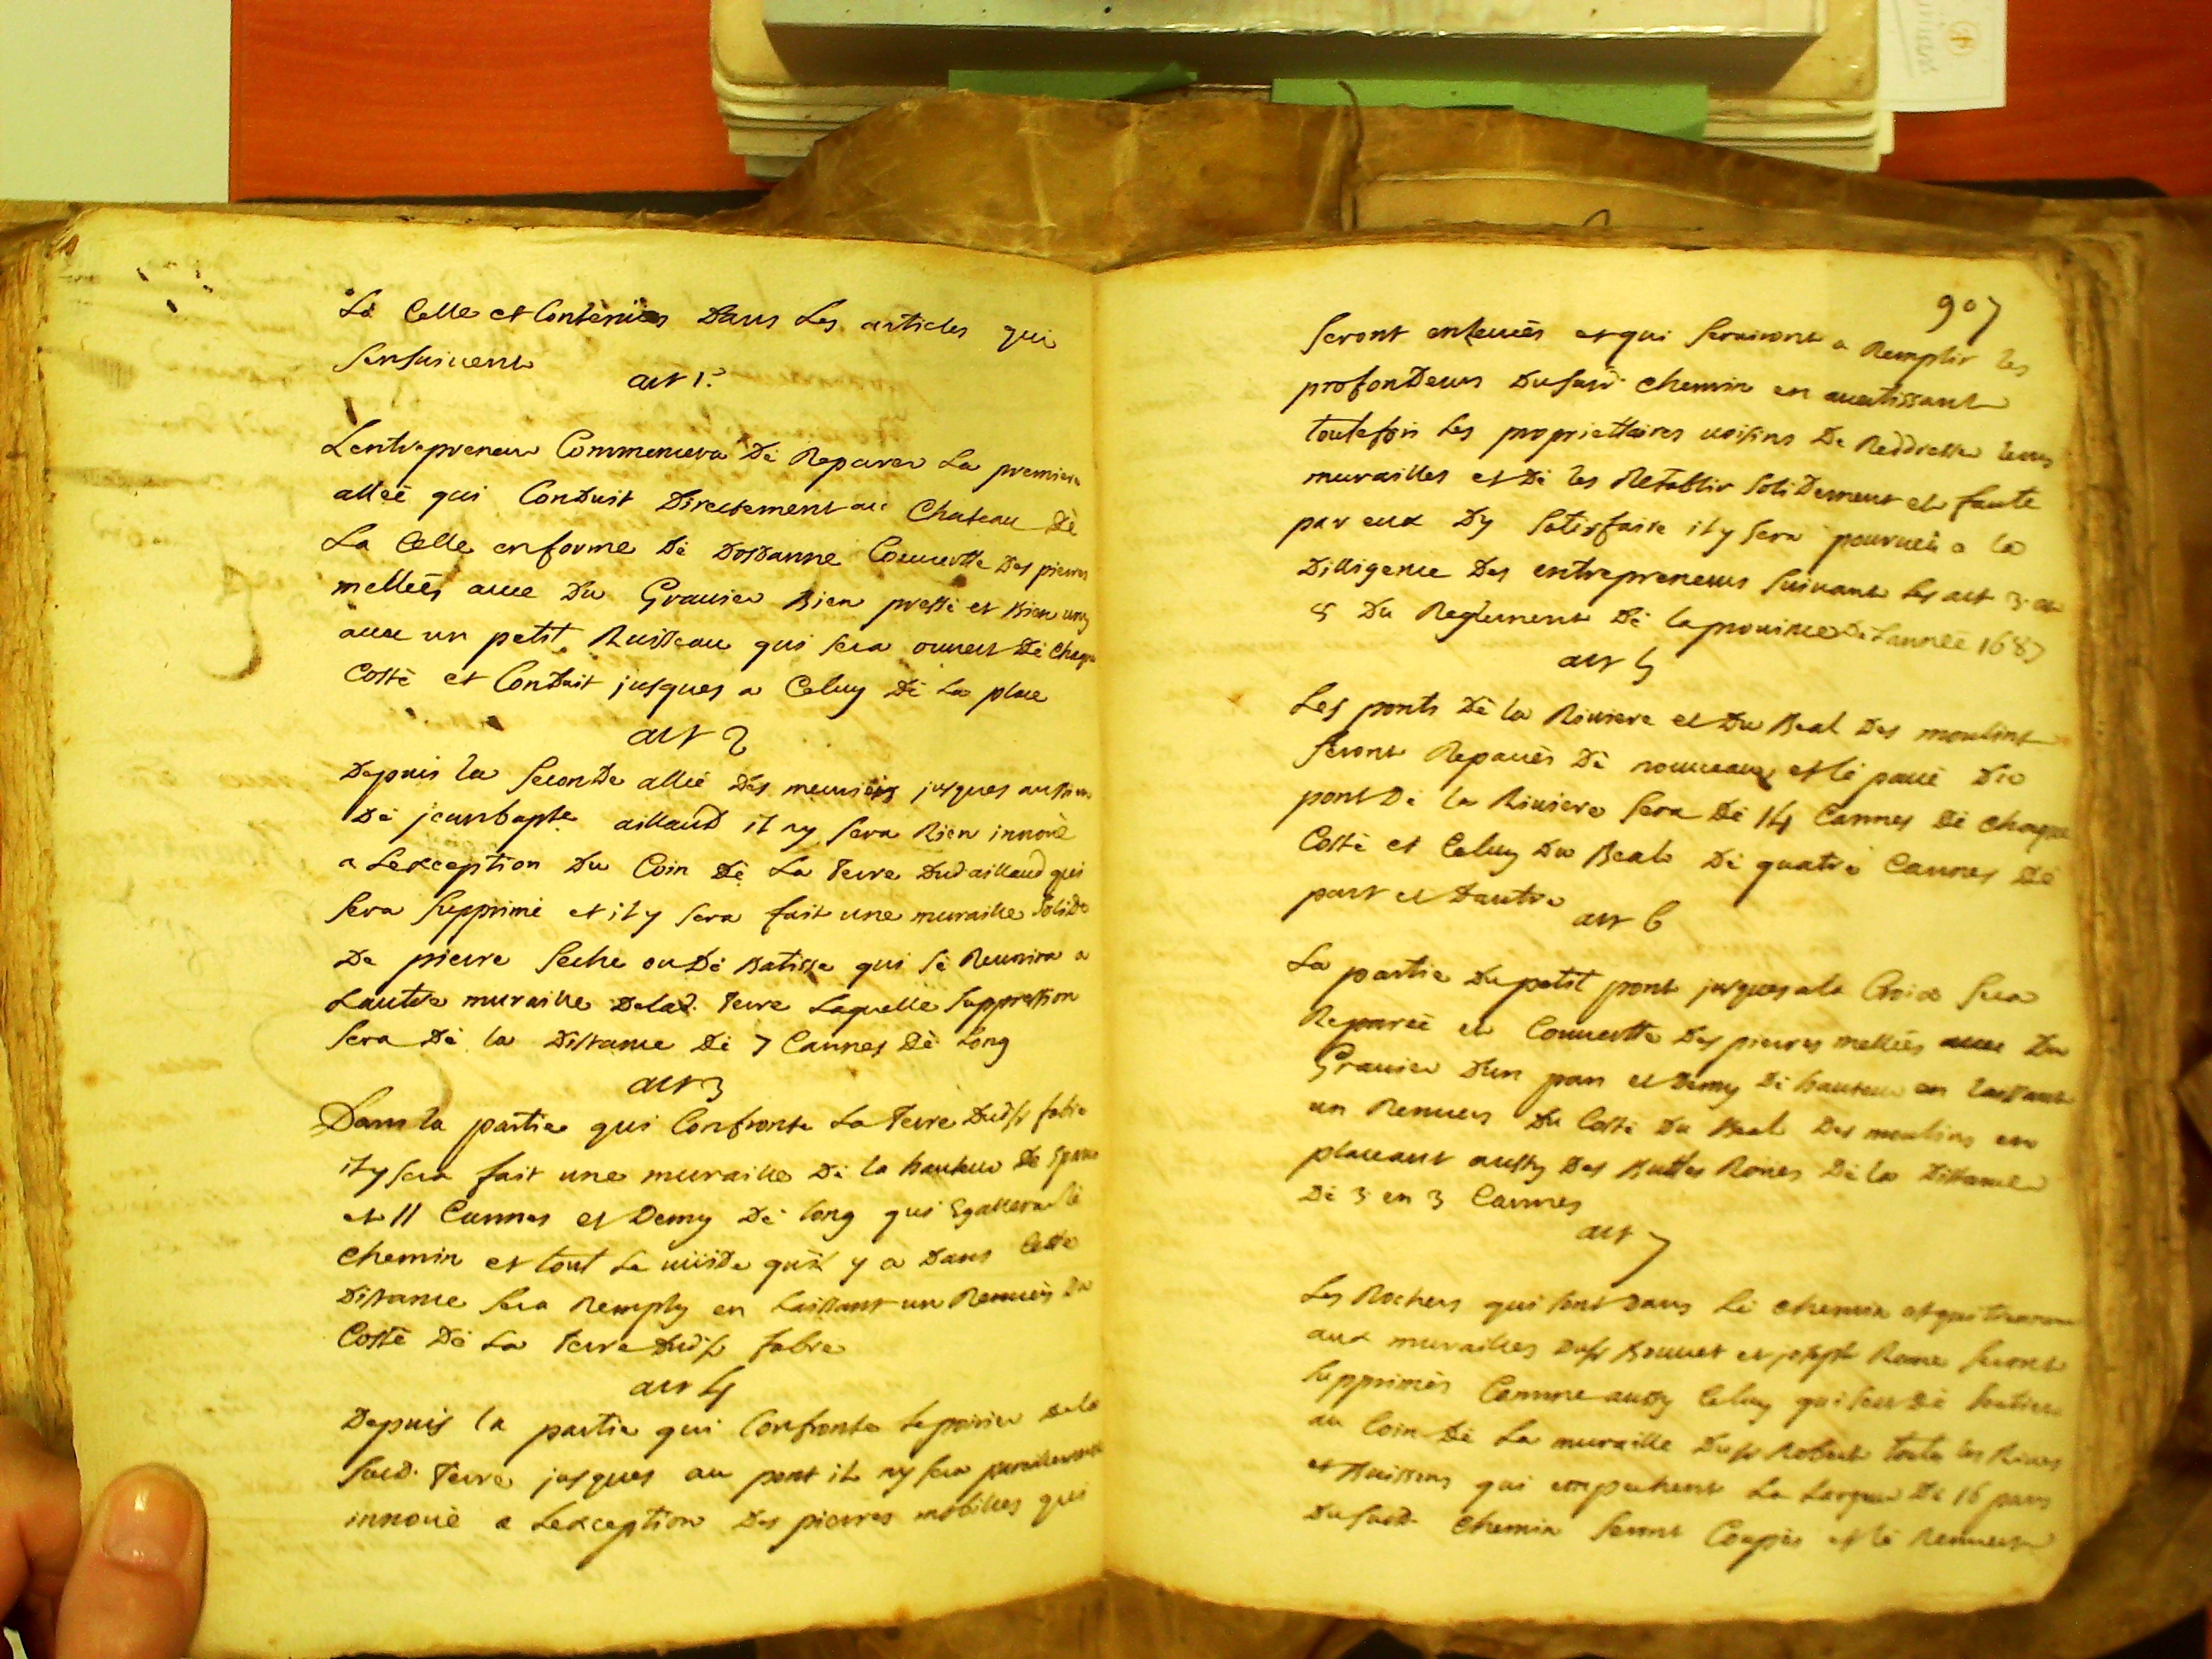 La Celle et Contenües Dans Les articles qui
sensuivent
art 1.r
Lentrepreneur Commencera De Reparer La premiere
alleé qui Conduit Directement au Chateau De
La Celle enforme De Dosdanne Couuertte Des pierres
melleés auec Du Grauier Bien pressé et Bien uny
auec un petit Ruisseau qui sera ouuert De chaque
Costé et Conduit jusques a Celuy De La place
art 2
Depuis la seconde alleé Des meuriers jusques
De jeanbapte aillaud il ny sera Rien innoué
a Lexception Du Coin De La terre Dud aillaud qui
sera supprimé et il y sera fait une muraille solide
De pierre seche ou De Batisse qui se Reunira a
Lautre muraille Delad. terre Laquelle suppression
sera De la Distance De 7 Cannes De Long
art 3
Dans la partie qui Confronte La terre Dud sr fabre
il y sera fait une muraille De la hauteur De 5 pans
et 11 Cannes et Demy De long qui Egallera le
chemin et tout Le uuide quil y a Dans Cette
Distance sera Remply en Laissant un Renuers Du
Costé De La terre Dud sr fabre
art 4
Depuis la partie qui Confronte Le poirier Dela
sud. terre jusques au pont il ny sera pareillement
innoué a Lexception Des pierres mobilles qui
907
seront enleueés et qui seruiront a Remplir les
profondeurs Dususd. chemin en auertissant
toutefois Les propriettaires uoisins De Reddresser leurs
murailles et De les Retablir solidement et faute
par eux Dy satisfaire il y sera pourueu a la
Dilligence Des entrepreneurs suiuant Les art 3 et
5 Du Reglement De la prouince De Lanneé 1687
art 5
Les ponts De la Riuiere et Du Beal Des moulins
seront Repaués De nouueau et le paué Du
pont De la Riuiere sera De 14 Cannes De chaque
Costé et Celuy Du Beal De quatre Cannes De
part et Dautre
art 6
La partie Du petit pont jusques ala Croix sera
Repareé et Couuertte Des pierres melleés auec Du
Grauier Dun pan et Demy De hauteur en laissant
un Renuers Du Costé Du Beal Des moulins en
placeant aussy Des Buttes Roües De la Distance
De 3 en 3 Cannes
art 7
Les Rochers qui sont Dans Le chemin et qui
aux murailles Du sr Bouuet et joseph Rome seront
supprimés Comme aussy Celuy qui sert De
au Coin De La muraille Du sr Robert toutes les Riues
et Buissons qui empechent La Largeur De 16 pans
Dusud chemin seront Coupés et le Renuers